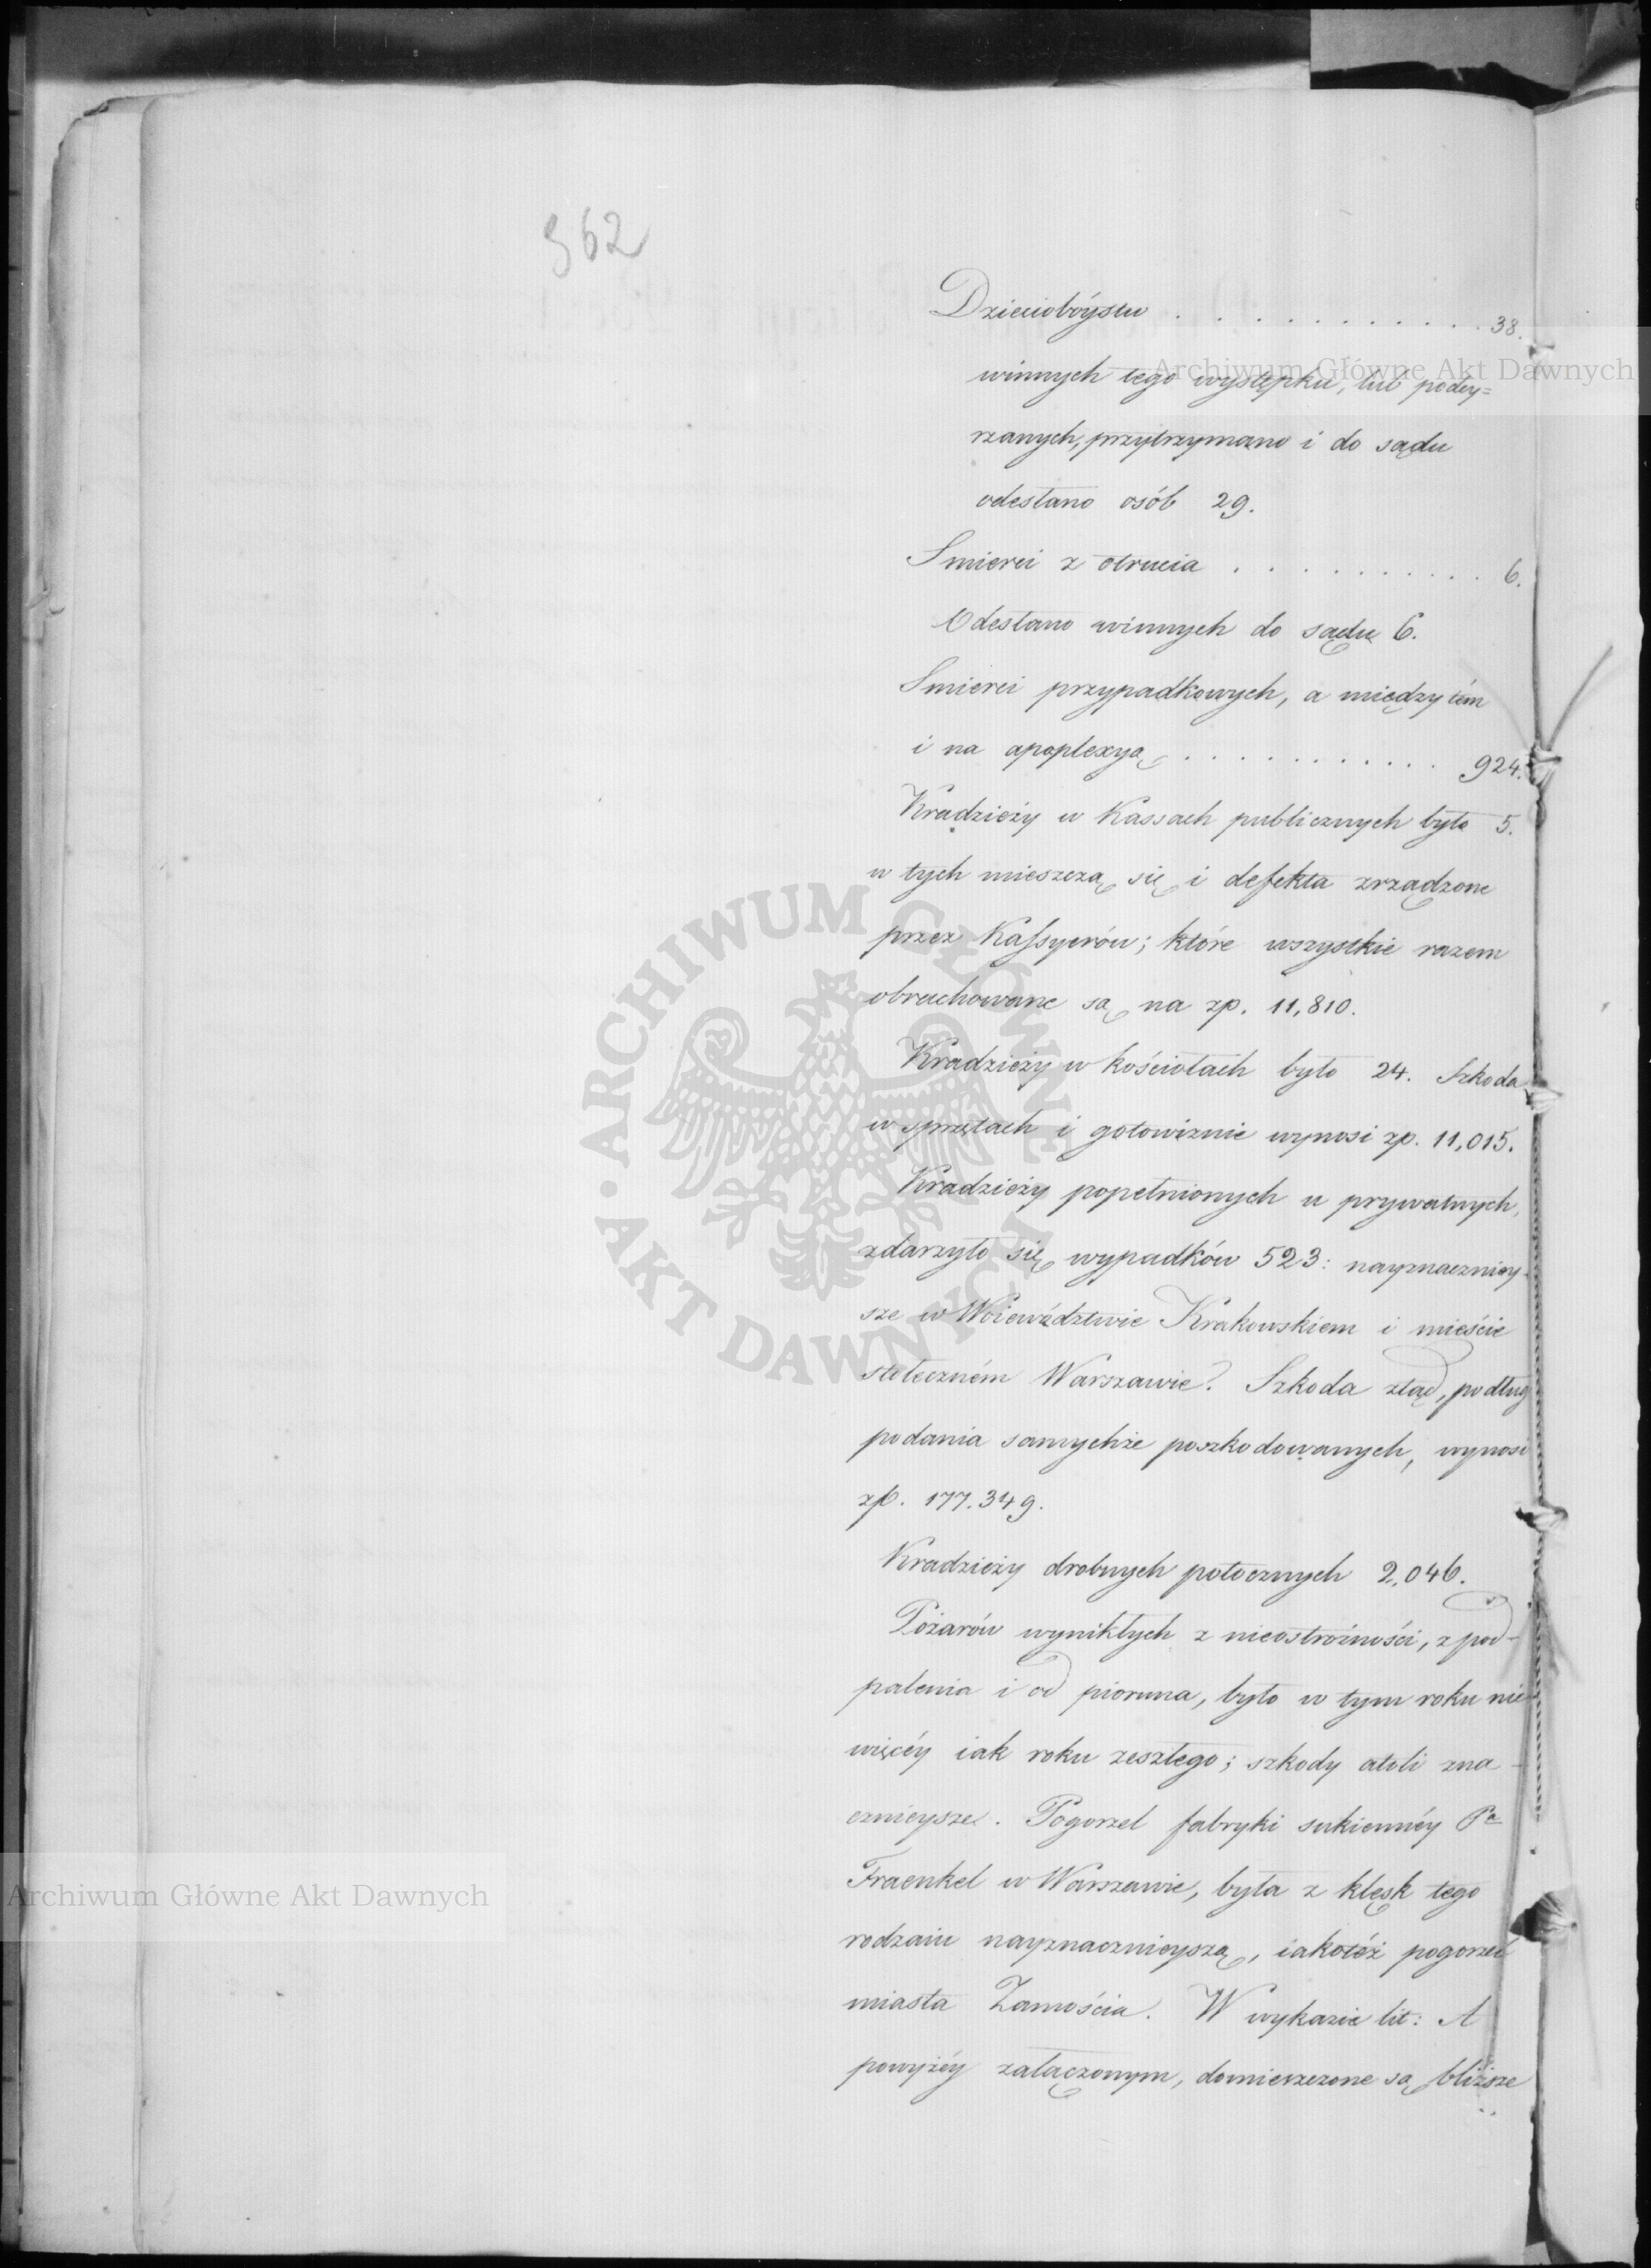 962
Dzieciobóystw . . . . . . . . . . . . 38.
Archiwum Główne Akt Dawnych
winnych tego występku, lub podey=
rzanych, przytrzymano i do sądu
odesłano osób 29.
Smierci z otrucia . . . . . . . . . . 6.
Odesłano winnych do sądu 6.
Smierci przypadkowych, a między tém
i na apoplexyą . . . . . . . . . . 924.
Kradzieży w Kassach publicznych było 5.
w tych mieszczą się i defekta zrządzone
przez Kassyerów; które wszystkie razem
obrachowane są na zp. 11,810.
Kradzieży w kościołach było 24. Szkoda
w sprzętach i gotowiznie wynosi zp. 11,015.
Kradzieży popełnionych u prywatnych,
zdarzyło się wypadków 523: nayznaczniey-
sze w Woiewództwie Krakowskiem i mieście
stołeczném Warszawie. Szkoda ztąd, podług
podania samychże poszkodowanych, wynosi
zp. 177.349.
Kradzieży drobnych potocznych 2,046.
Pożarów wynikłych z nieostrożności, z pod-
palenia i od pioruna, było w tym roku nie
więcéy iak roku zeszłego; szkody atoli zna-
cznieysze. Pogorzel fabryki sukiennéy Pa
Fraenkel w Warszawie, była z klęsk tego
rodzaiu nayznacznieyszą, iakotéż pogorzel
miasta Zamościa. W wykazie lit: A
powyżéy załączonym, domieszczone są bliższe
ARCHIWUM GŁÓWNE AKT DAWNYCH
Archiwum Główne Akt Dawnych